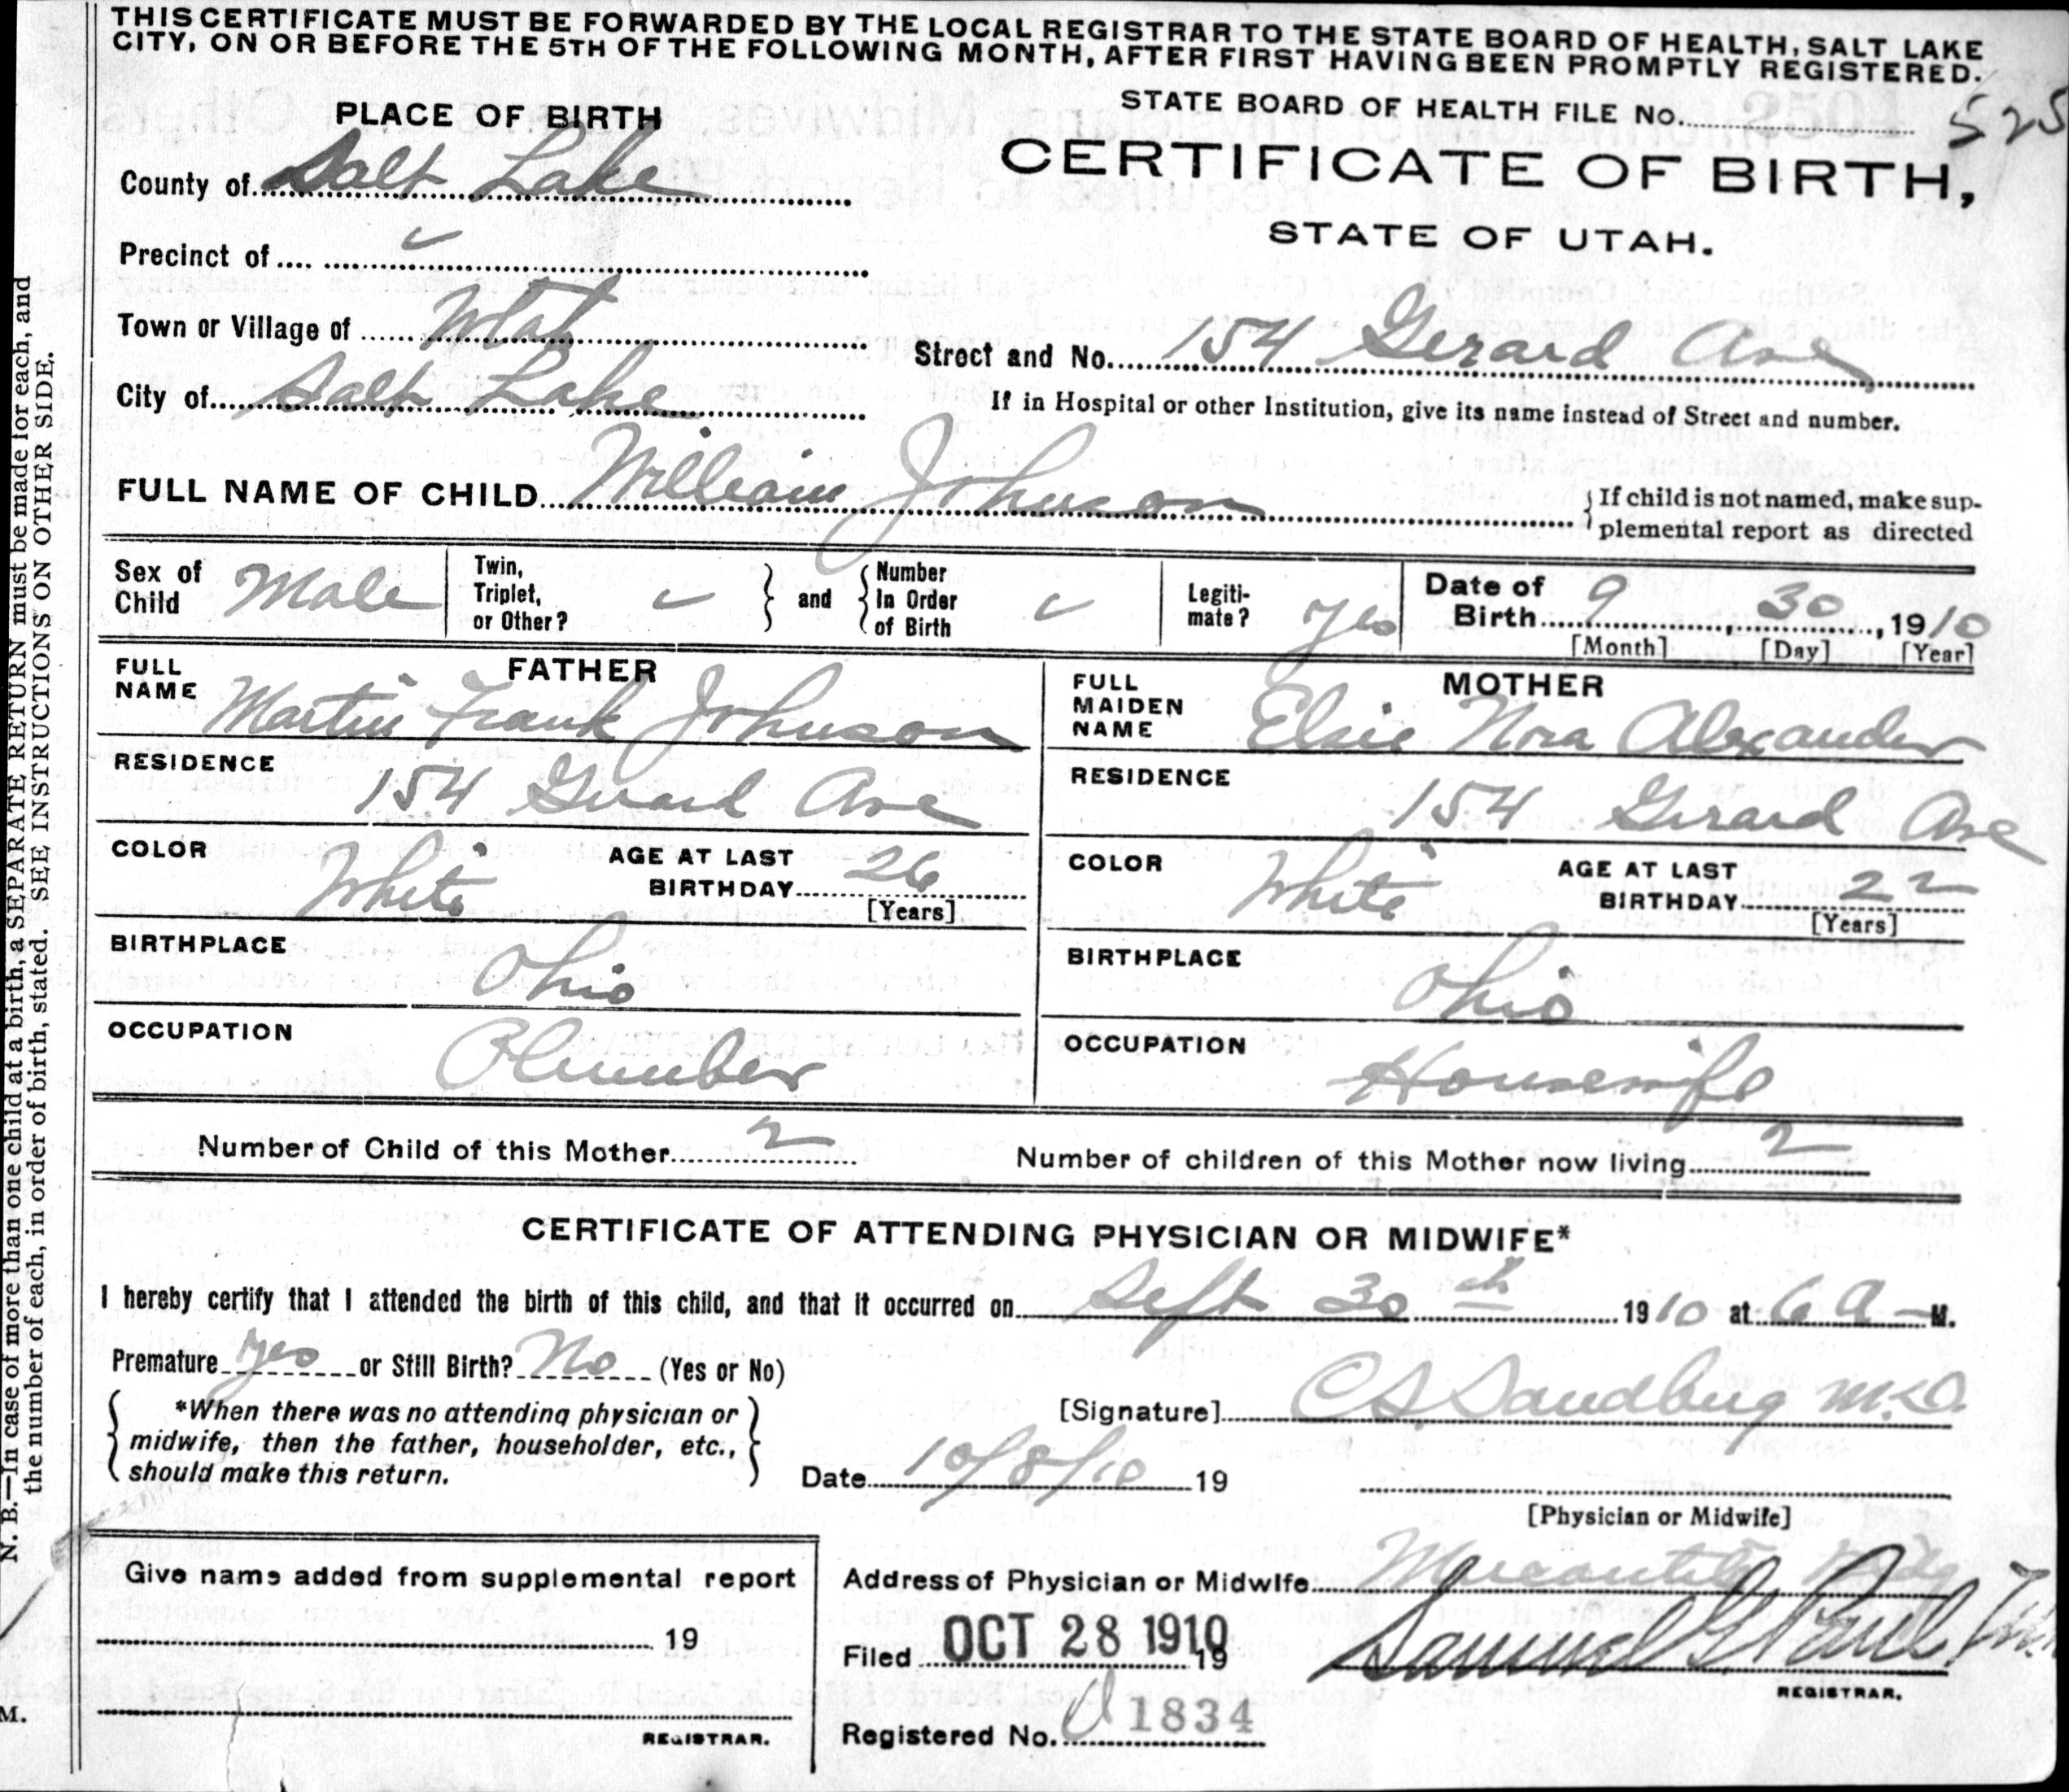 THIS CERTIFICATE MUST BE FORWARDED BY THE LOCAL REGISTRAR TO THE STATE BOARD OF HEALTH, SALT LAKE
CITY, ON OR BEFORE THE 5TH OF THE FOLLOWING MONTH, AFTER FIRST HAVING BEEN PROMPTLY REGISTERED.
PLACE OF BIRTH
STATE BOARD OF HEALTH FILE No. 525
County of Salt Lake
CERTIFICATE OF BIRTH,
STATE OF UTAH.
Precinct of
Town or Village of Utah
Street and No. 154 Gerard Ave
City of Salt Lake
If in Hospital or other Institution, give its name instead of Street and number.
FULL NAME OF CHILD William Johnson
{ If child is not named, make sup-
plemental report as directed
Sex of Child Male
Twin, Triplet, or Other?
and
Number In Order of Birth
Legiti-mate? Yes
Date of Birth 9, 30, 1910
[Month] [Day] [Year]
FATHER
FULL NAME Martin Frank Johnson
RESIDENCE 154 Gerard Ave
COLOR White AGE AT LAST BIRTHDAY 26
[Years]
BIRTHPLACE Ohio
OCCUPATION Plumber
MOTHER
FULL MAIDEN NAME Elsie Nora Alexander
RESIDENCE 154 Gerard Ave
COLOR White AGE AT LAST BIRTHDAY 22
[Years]
BIRTHPLACE Ohio
OCCUPATION Housewife
Number of Child of this Mother 2
Number of children of this Mother now living 2
CERTIFICATE OF ATTENDING PHYSICIAN OR MIDWIFE*
I hereby certify that I attended the birth of this child, and that it occurred on Sept 30th 1910 at 6 A M.
Premature Yes or Still Birth? No (Yes or No)
*When there was no attending physician or
midwife, then the father, householder, etc.,
should make this return.
[Signature] C S. Sandberg M.D.
Date 10/8/10 19
[Physician or Midwife]
Give name added from supplemental report
19
REGISTRAR.
Address of Physician or Midwife Mercantile Bldg
Filed OCT 28 1910 19
Samuel G Paul
REGISTRAR.
Registered No. 1834
N. B.—In case of more than one child at a birth, a SEPARATE RETURN must be made for each, and
the number of each, in order of birth, stated. SEE INSTRUCTIONS ON OTHER SIDE.
M.